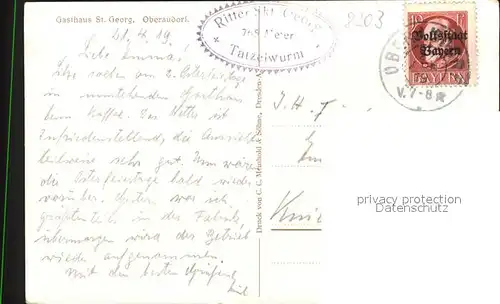 Gasthaus St. Georg, Oberaudorf.
Ritter Skt. Georg
768 Meer
Tatzelwurm
2203
10 PF 10
Volksstaat
Bayern
BAYERN
V. 7-8
21. 4. 19.
Liebe Emma!
Sitze soeben am 2. Osterfeiertage
in umstehendem Gasthaus
beim Kaffee. Das Wetter ist
zufriedenstellend, die Aussicht
teilweise sehr gut. Nun wären
die Osterfeiertage bald wieder
vorüber. Gestern war ich
größtenteils in der Fabrik,
übermorgen wird der Betrieb
wieder aufgenommen.
Mit den besten Grüßen
Emil
Druck von C. C. Meinhold & Söhne, Dresden-A.
privacy protection
Datenschutz